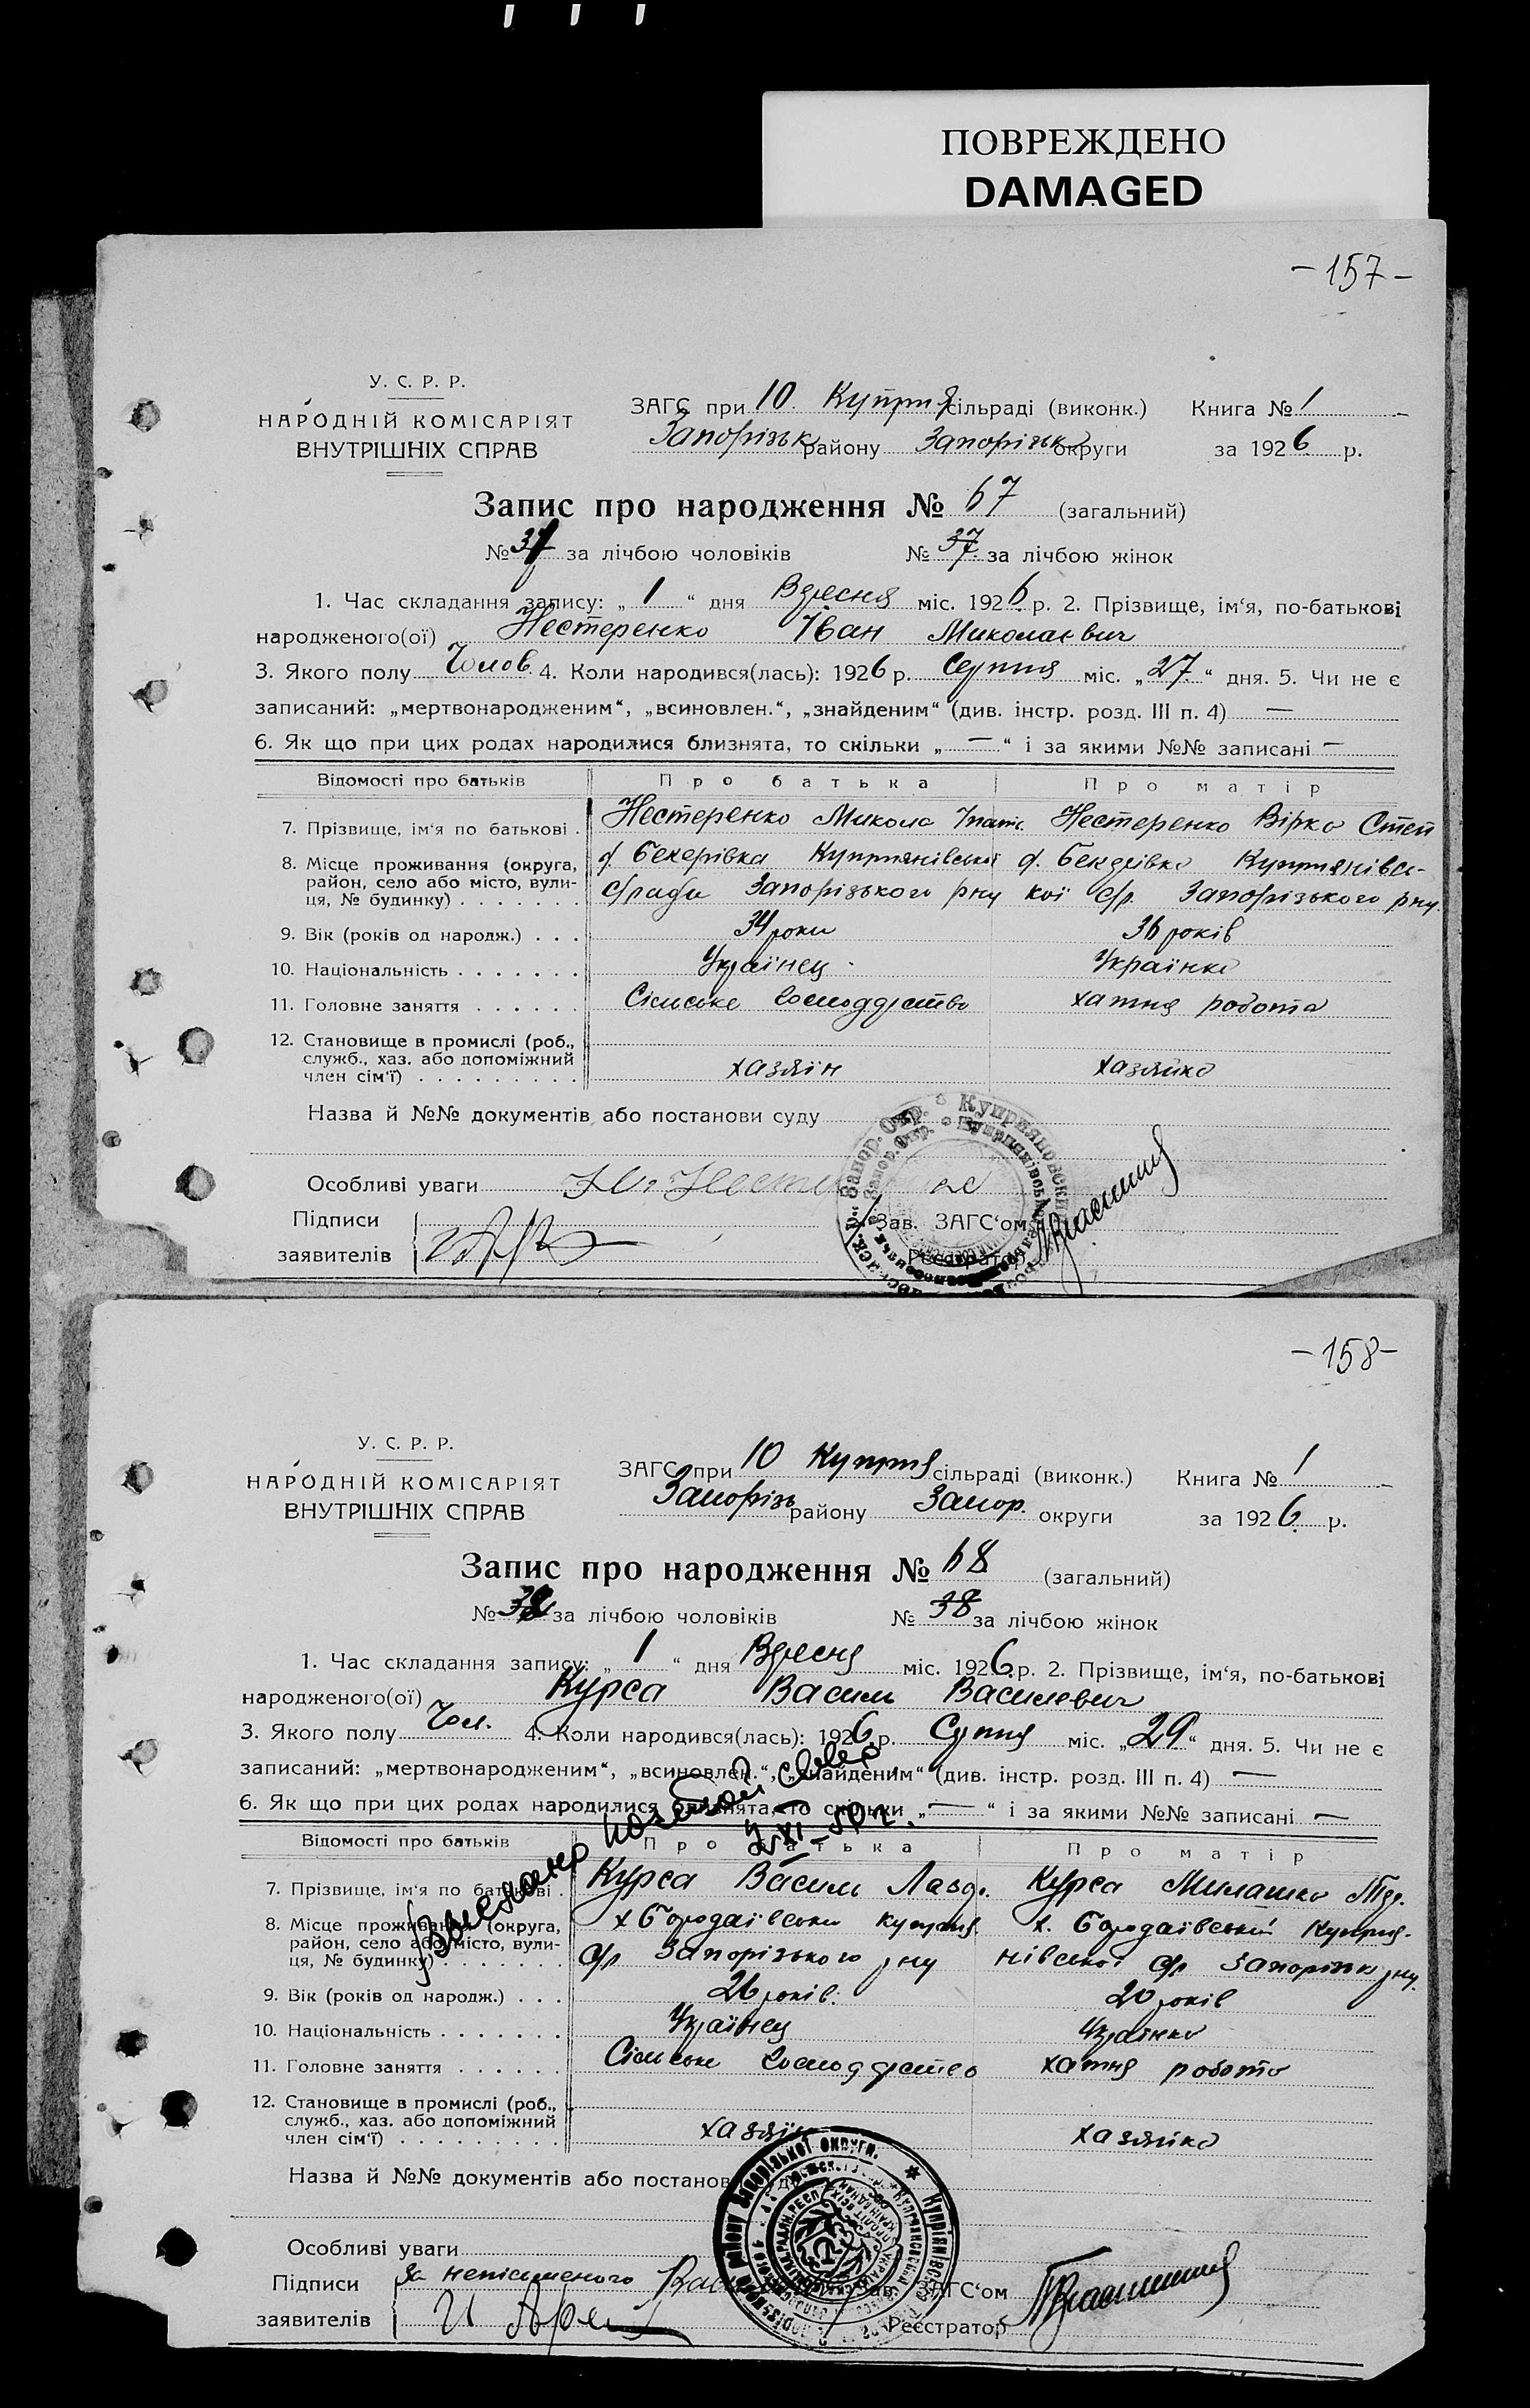 ПОВРЕЖДЕНО
DAMAGED
– 157 –
У. С. Р. Р.
НАРОДНІЙ КОМІСАРІЯТ
ВНУТРІШНІХ СПРАВ
ЗАГС при 10 Купрія сільраді (виконк.) Книга № 1
Запорізьк району Запорізьк округи за 1926 р.
Запис про народження № 67 (загальний)
№ за лічбою чоловіків № 37 за лічбою жінок
1. Час складання запису: „ 1 “ дня Вересня міс. 1926 р. 2. Прізвище, ім‘я, по-батькові
народженого(ої) Нестеренко Іван Миколаєвич
3. Якого полу Чолов. 4. Коли народився(лась): 1926 р. Серпня міс. „ 27 “ дня. 5. Чи не є
записаний: „мертвонародженим“, „всиновлен.“, „знайденим“ (див. інстр. розд. III п. 4) —
6. Як що при цих родах народилися близнята, то скільки „ — “ і за якими №№ записані —
Відомості про батьків Про батька Про матір
7. Прізвище, ім‘я по батькові . Нестеренко Микола Нестеренко Вірка Степ
8. Місце проживання (округа, Купріянівської Купріянівсь-
район, село або місто, вули- с/ради Запорізького р-ну кої с/р. Запорізького р-ну
ця, № будинку) . . . . . . .
9. Вік (років од народж.) . . . 34 роки 36 років
10. Національність . . . . . . . Українец Українка
11. Головне заняття . . . . . . Сільське господарство хатня робота
12. Становище в промислі (роб.,
служб., хаз. або допоміжний
член сім‘ї) . . . . . . . . . хазяїн хазяйка
Назва й №№ документів або постанови суду
Особливі уваги
Підписи Зав. ЗАГС‘ом
заявителів Реєстратор
– 158 –
У. С. Р. Р.
НАРОДНІЙ КОМІСАРІЯТ
ВНУТРІШНІХ СПРАВ
ЗАГС при 10 Купрія сільраді (виконк.) Книга № 1
Запорізь району Запор. округи за 1926 р.
Запис про народження № 68 (загальний)
№ за лічбою чоловіків № 38 за лічбою жінок
1. Час складання запису: „ 1 “ дня Вересня міс. 1926 р. 2. Прізвище, ім‘я, по-батькові
народженого(ої) Курса Василь Василевич
3. Якого полу Чол. 4. Коли народився(лась): 1926 р. Серпня міс. „ 29 “ дня. 5. Чи не є
записаний: „мертвонародженим“, „всиновлен.“, „знайденим“ (див. інстр. розд. III п. 4) —
6. Як що при цих родах народилися близнята, то скільки „ — “ і за якими №№ записані —
Відомості про батьків Про батька Про матір
7. Прізвище, ім‘я по батькові . Курса Василь Курса
8. Місце проживання (округа, х. Бородаївський Купріян. х. Бородаївський Купрія-
район, село або місто, вули- с/р Запорізького р-ну нівської с/р Запорізьк р-ну
ця, № будинку) . . . . . . .
9. Вік (років од народж.) . . . 26 років. 20 років
10. Національність . . . . . . . Українец Українка
11. Головне заняття . . . . . . Сільське господарство хатня робота
12. Становище в промислі (роб.,
служб., хаз. або допоміжний
член сім‘ї) . . . . . . . . . хазяїн хазяйка
Назва й №№ документів або постанов
Особливі уваги
Підписи За неписьменого Зав. ЗАГС‘ом
заявителів Реєстратор